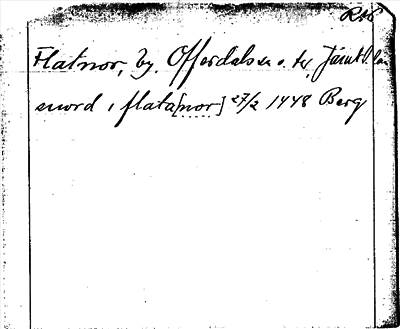 RAÖ
Flatnor, by, Offerdals sn o. tg, Jämtl. la
nord i flata[nor] 27/2 1448 Berg